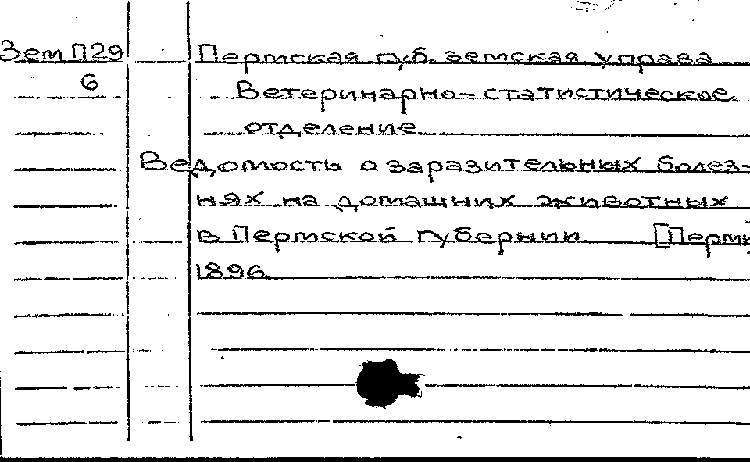 Зем П29 Пермская губ. земская управа
6 Ветеринарно-статистическое
отделение
Ведомость о заразительных болез-
нях на домашних животных
в Пермской губернии [Пермь
1896